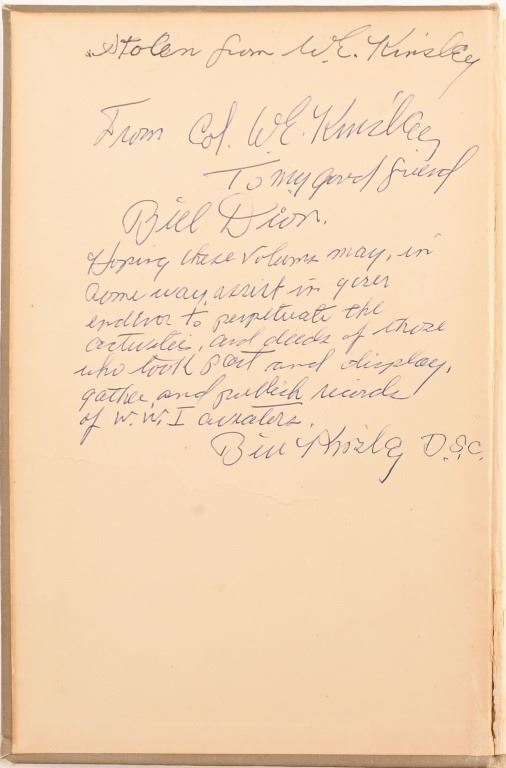 Stolen from W.E. Kinsley
From Col. W.E. Kinsley
To my good friend
Bill Dion.
Hoping these volums may, in
some way, assist in your
endevor to perpetuate the
activities, and deeds of those
who took part and display,
gather, and publish records
of W.W.I aviators.
Bill Kinsley D.S.C.